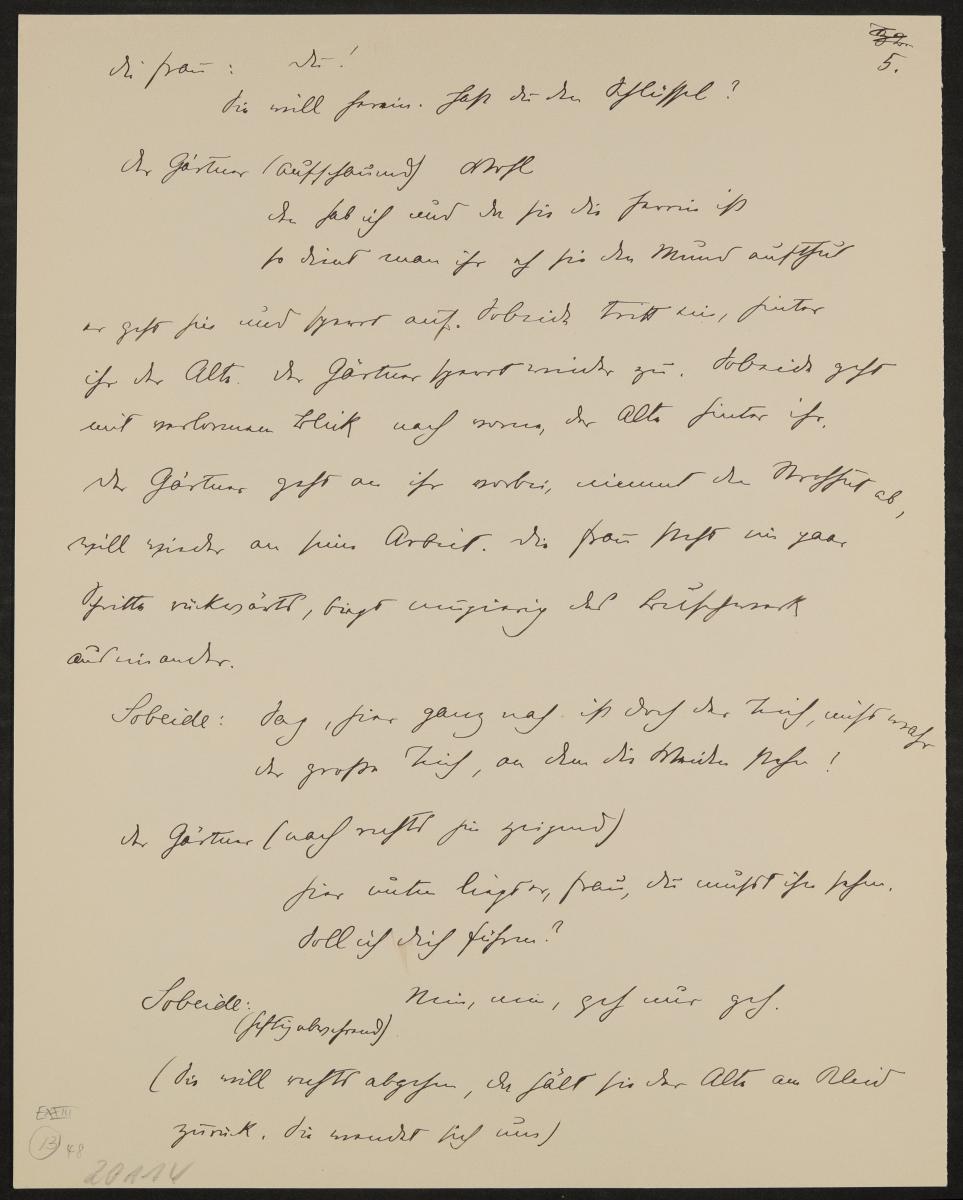 5.
die Frau: Du!
Sie will herein. Hast du den Schlüssel?
der Gärtner (aufschauend) Wohl
den hab ich und da sie die Herrin ist
so dient man ihr eh sie den Mund aufthut
er geht hin und sperrt auf. Sobeide tritt ein, hinter
ihr der Alte. der Gärtner sperrt wieder zu. Sobeide geht
mit verlorenem Blick nach vorne, der Alte hinter ihr.
Der Gärtner geht an ihr vorbei, nimmt den Strohhut ab,
will wieder an seine Arbeit. Die Frau steht ein paar
Schritte rückwärts, biegt neugierig das Buschwerk
auseinander.
Sobeide: Sag, hier ganz nah ist doch der Teich, nicht wahr
der große Teich, an dem die Weiden stehn!
der Gärtner (nach rechts hin zeigend)
hier unten liegt er, Frau, du mußt ihn sehn.
Soll ich dich führen?
Sobeide: Nein, nein, geh nur geh.
(heftig abwehrend)
(Sie will rechts abgehen, da hält sie der Alte am Kleid
zurück. Sie wendet sich um)
13
48